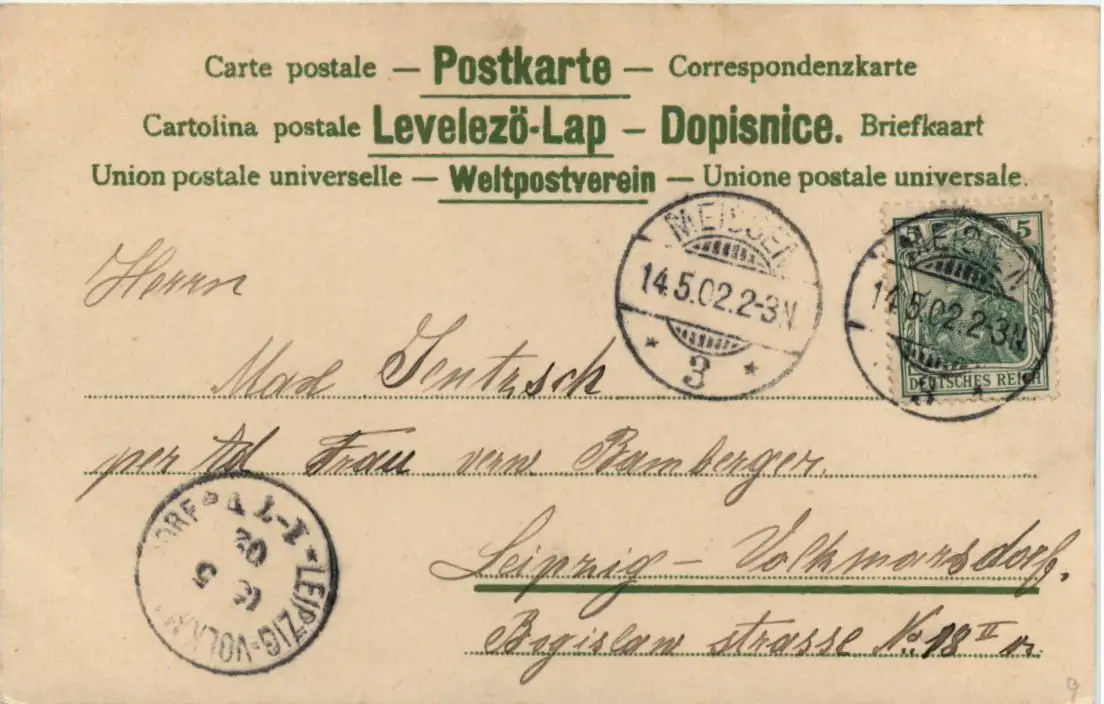 Carte postale — Postkarte — Correspondenzkarte
Cartolina postale Levelezö-Lap — Dopisnice. Briefkaart
Union postale universelle — Weltpostverein — Unione postale universale.
MEISSEN
14.5.02.2-3N
* 3 *
MEISSEN
14.5.02.2-3N
5
DEUTSCHES REICH
Herrn
Max Jentzsch
per Frau verw Bamberger.
Leipzig - Volkmarsdorf.
strasse No. 18 II
LEIPZIG-VOLKMARSDORF
5
02